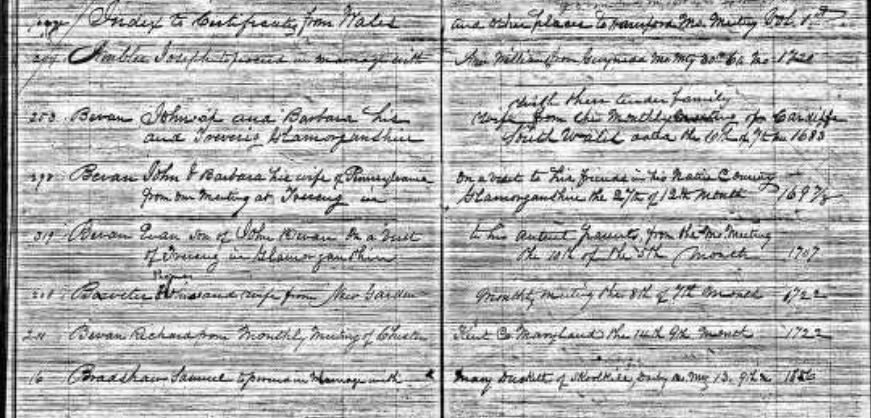 Index to Certificates from Wales and other places to Monthly Meeting Vol. 1st
Ambler Joseph to proceed in marriage with Ann William from Gwynedd Mo Mtg 30th 6th Mo 1720
253 Bevan John ap and Barbara his wife from the Monthly Meeting of Cardiffe
with there tender family
and Treveris Glamorganshire South Wales dated the 10th of 7th mo 1683
298 Bevan John & Barbara his wife of Pennsylvania on a visit to his friends in his Native County
from our Meeting at Treverig in Glamorganshire the 27th of 12th Month 1697/8
319 Bevan Evan Son of John Bevan on a visit to his Parents, from the Mo Meeting
of Treverig in Glamorganshire the 10th of the 5th Month 1707
and wife from New Garden Monthly Meeting the 8th of 7th Month 1722
211 Bevan Richard from Monthly Meeting of Chester Kent Co Maryland the 14th 9th Month 1722
16 Bradshaw Samuel to proceed in Marriage with Mary of 13, 9th